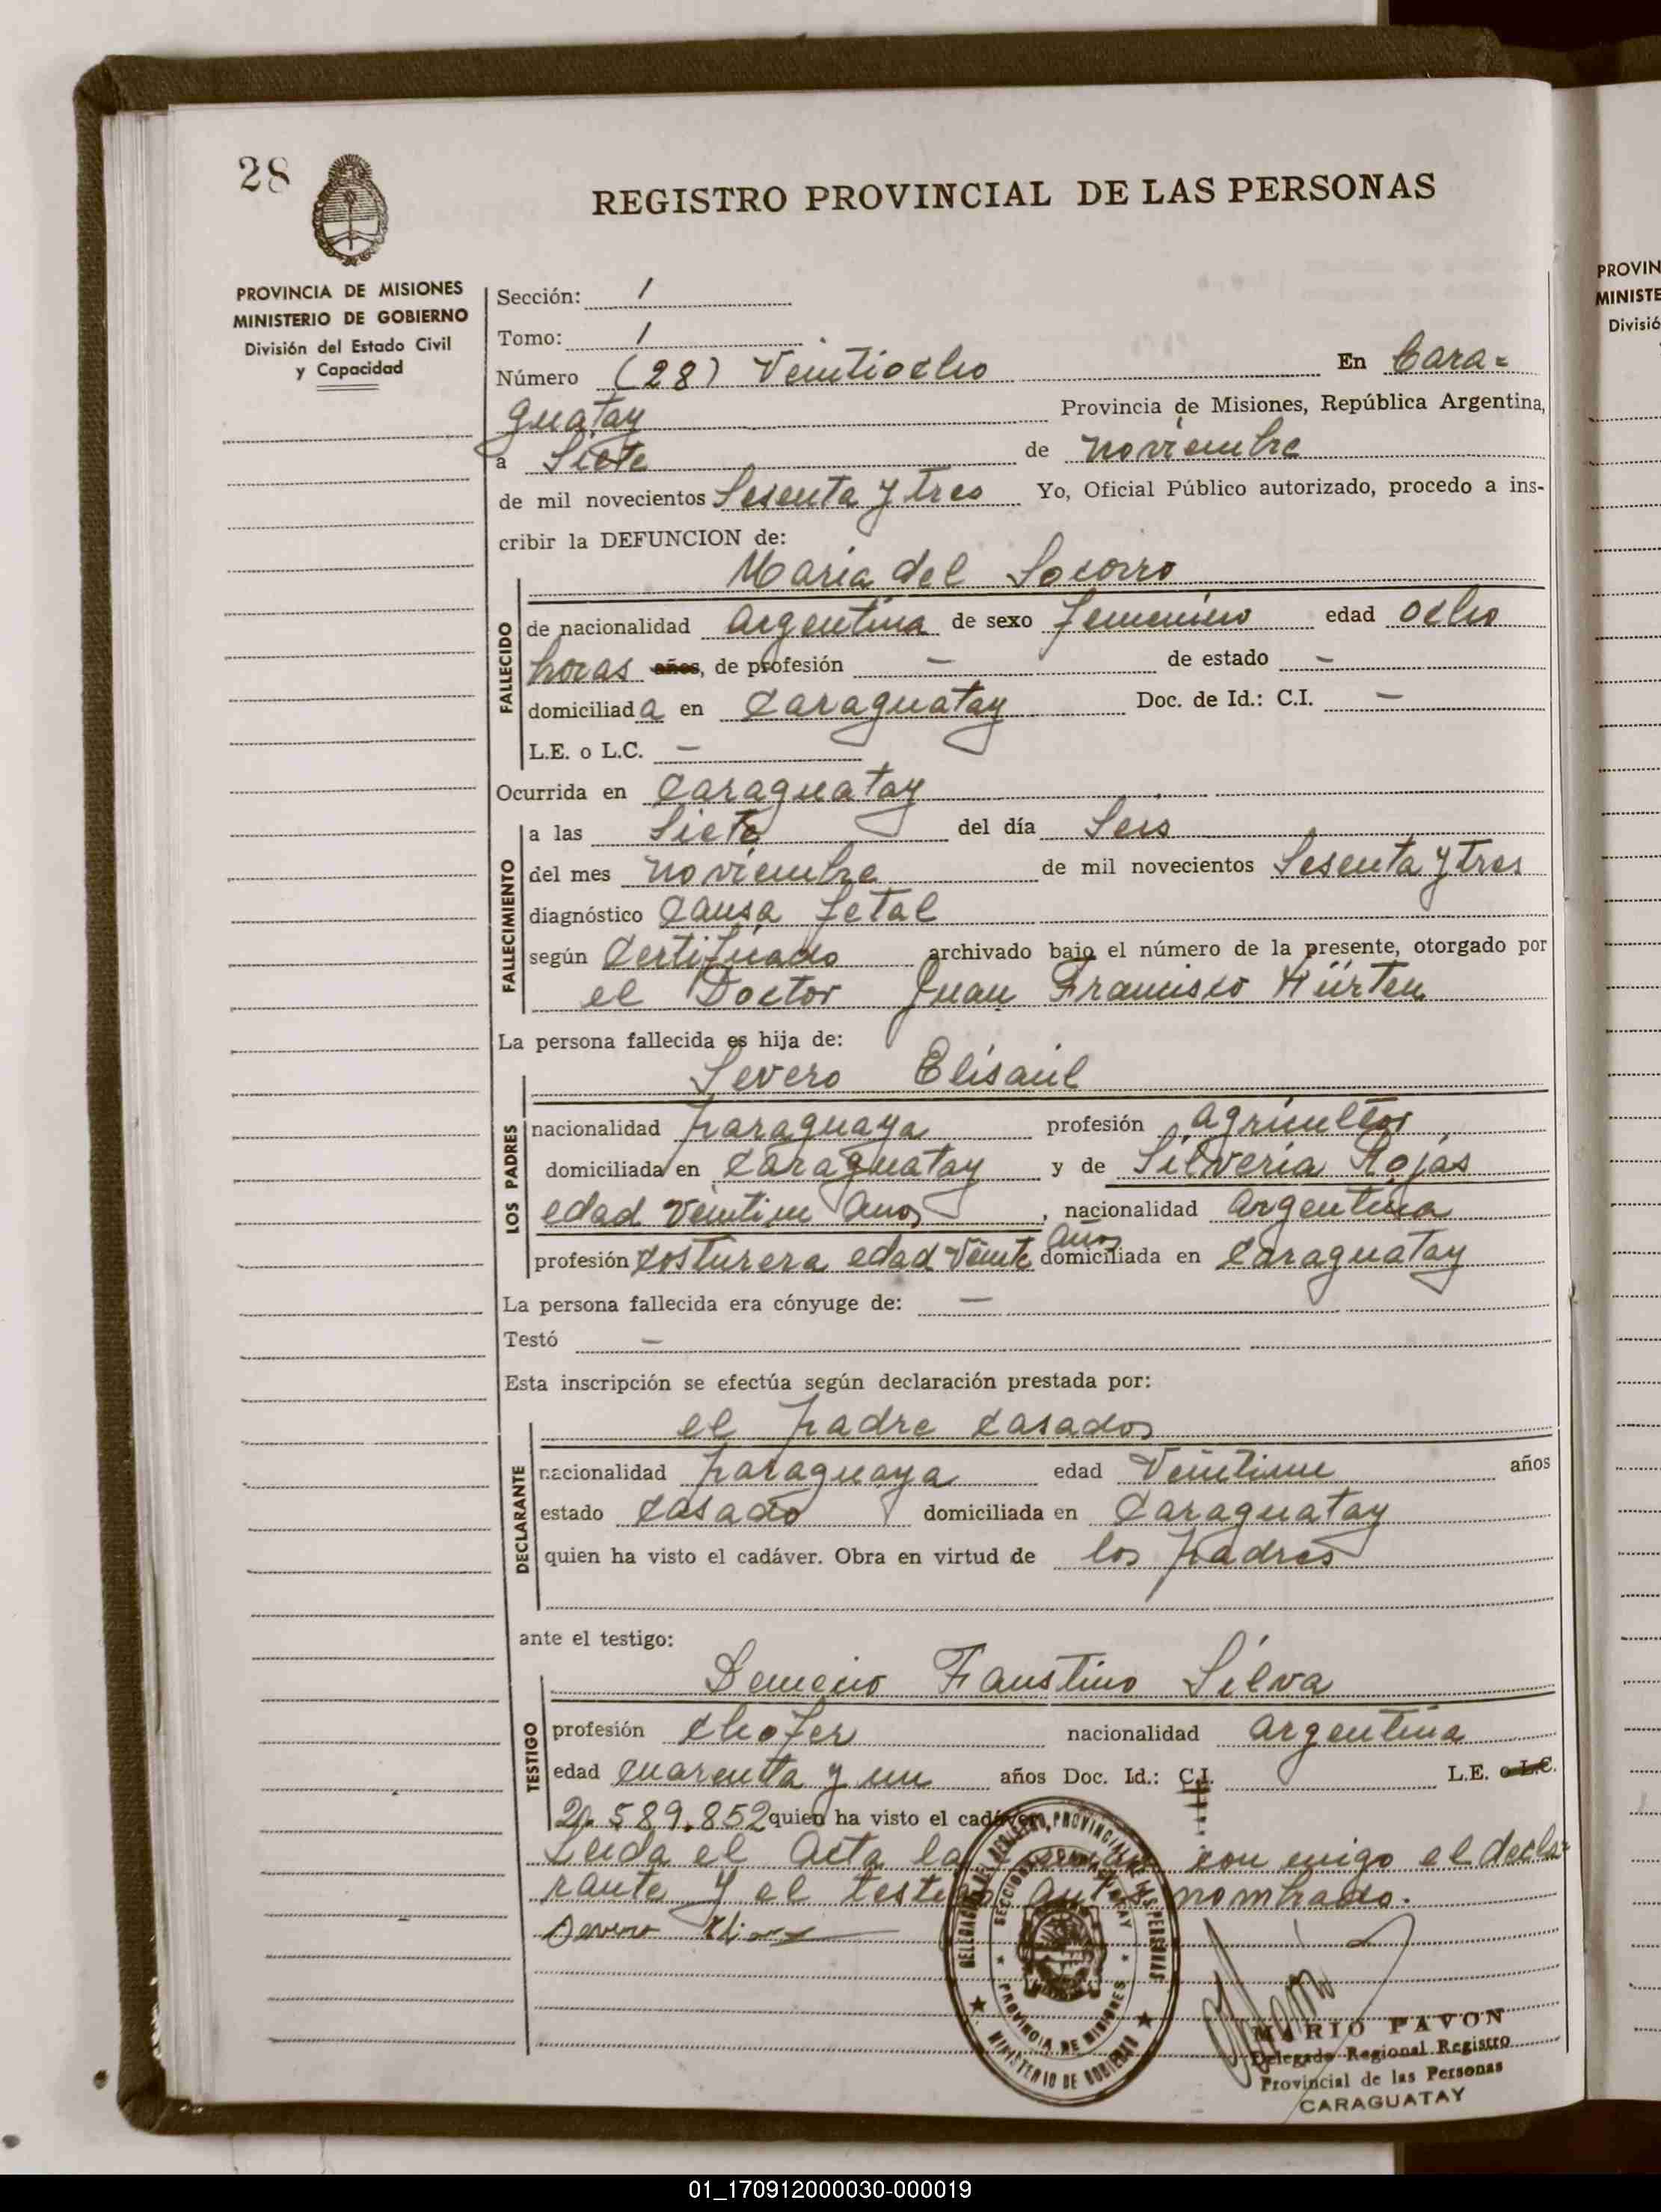 28
REGISTRO PROVINCIAL DE LAS PERSONAS
PROVINCIA DE MISIONES
MINISTERIO DE GOBIERNO
División del Estado Civil
y Capacidad
Sección: 1
Tomo: 1
Número (28) Veintiocho En Cara=
guatay Provincia de Misiones, República Argentina,
a Siete de noviembre
de mil novecientos Sesenta y tres Yo, Oficial Público autorizado, procedo a ins-
cribir la DEFUNCION de:
Maria del Socorro
FALLECIDO
de nacionalidad Argentina de sexo femenino edad ocho
horas años, de profesión — de estado —
domiciliada en Caraguatay Doc. de Id.: C.I. —
L.E. o L.C. —
Ocurrida en Caraguatay
FALLECIMIENTO
a las Siete del día Seis
del mes noviembre de mil novecientos Sesenta y tres
diagnóstico Causa fetal
según Certificado archivado bajo el número de la presente, otorgado por
el Doctor Juan Francisco Hürten
La persona fallecida es hija de:
Severo
LOS PADRES
nacionalidad paraguaya profesión agricultor
domiciliada en Caraguatay y de Silveria Rojas
edad veintiun años, nacionalidad argentina
años
profesión costurera edad veinte domiciliada en Caraguatay
La persona fallecida era cónyuge de: —
Testó —
Esta inscripción se efectúa según declaración prestada por:
el padre casados
DECLARANTE
nacionalidad paraguaya edad Veintiun años
estado casado domiciliada en Caraguatay
quien ha visto el cadáver. Obra en virtud de los padres
ante el testigo:
Faustino Silva
TESTIGO
profesión chofer nacionalidad argentina
edad cuarenta y un años Doc. Id.: C.I. L.E. o L.C.
2.589.852 quien ha visto el cadáver.
Leida el acta la con migo el decla=
rante y el testigo antes nombrado.
Severo
DELEGACION DEL REGISTRO PROVINCIAL DE LAS PERSONAS
MINISTERIO DE GOBIERNO
PROVINCIA DE MISIONES
MARIO PAVON
Delegado Regional Registro
Provincial de las Personas
CARAGUATAY
PROVIN
MINISTE
Divisió
01_170912000030-000019